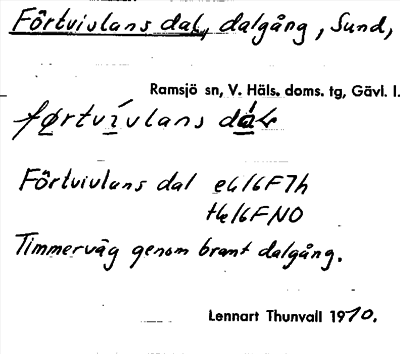 Förtvivlans dal, dalgång, Sund,
Ramsjö sn, V. Häls. doms. tg, Gävl. l.
førtvívlans
Förtvivlans dal eG16F7h
HG16FNO
Timmerväg genom brant dalgång.
Lennart Thunvall 1970.